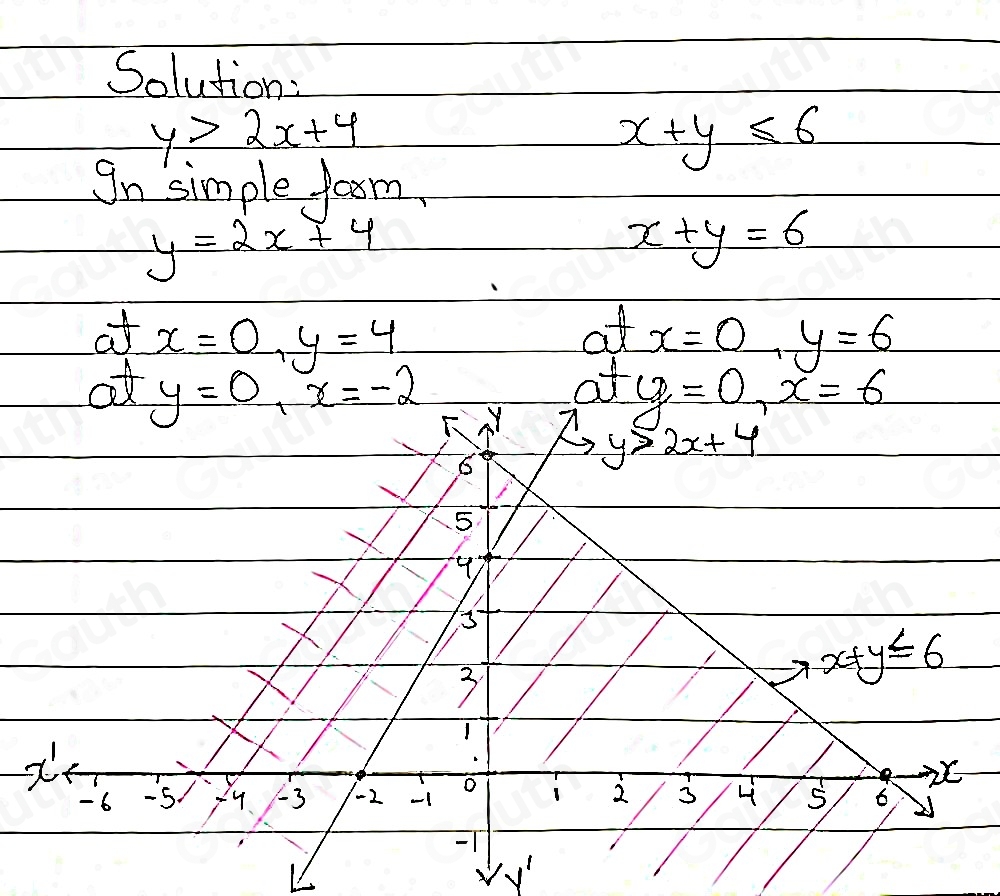 Solution:
y > 2x+4 x+y ≤ 6
In simple form,
y = 2x + 4 x+y = 6
at x = 0, y = 4 at x = 0, y = 6
at y = 0, x = -2 at y = 0, x = 6
Y
y > 2x+4
6
5
4
3
x+y ≤ 6
2
1
x' x
-6 -5 -4 -3 -2 -1 0 1 2 3 4 5 6
-1
Y'
Gauth